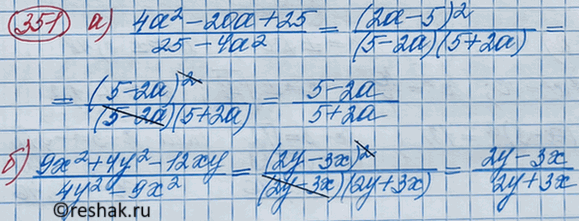 351 а) (4a² - 20a + 25)/(25 - 4a²) = (2a - 5)²/((5 - 2a)(5 + 2a)) =
= (5 - 2a)²/((5 - 2a)(5 + 2a)) = (5 - 2a)/(5 + 2a)
б) (9x² + 4y² - 12xy)/(4y² - 9x²) = (2y - 3x)²/((2y - 3x)(2y + 3x)) = (2y - 3x)/(2y + 3x)
©reshak.ru